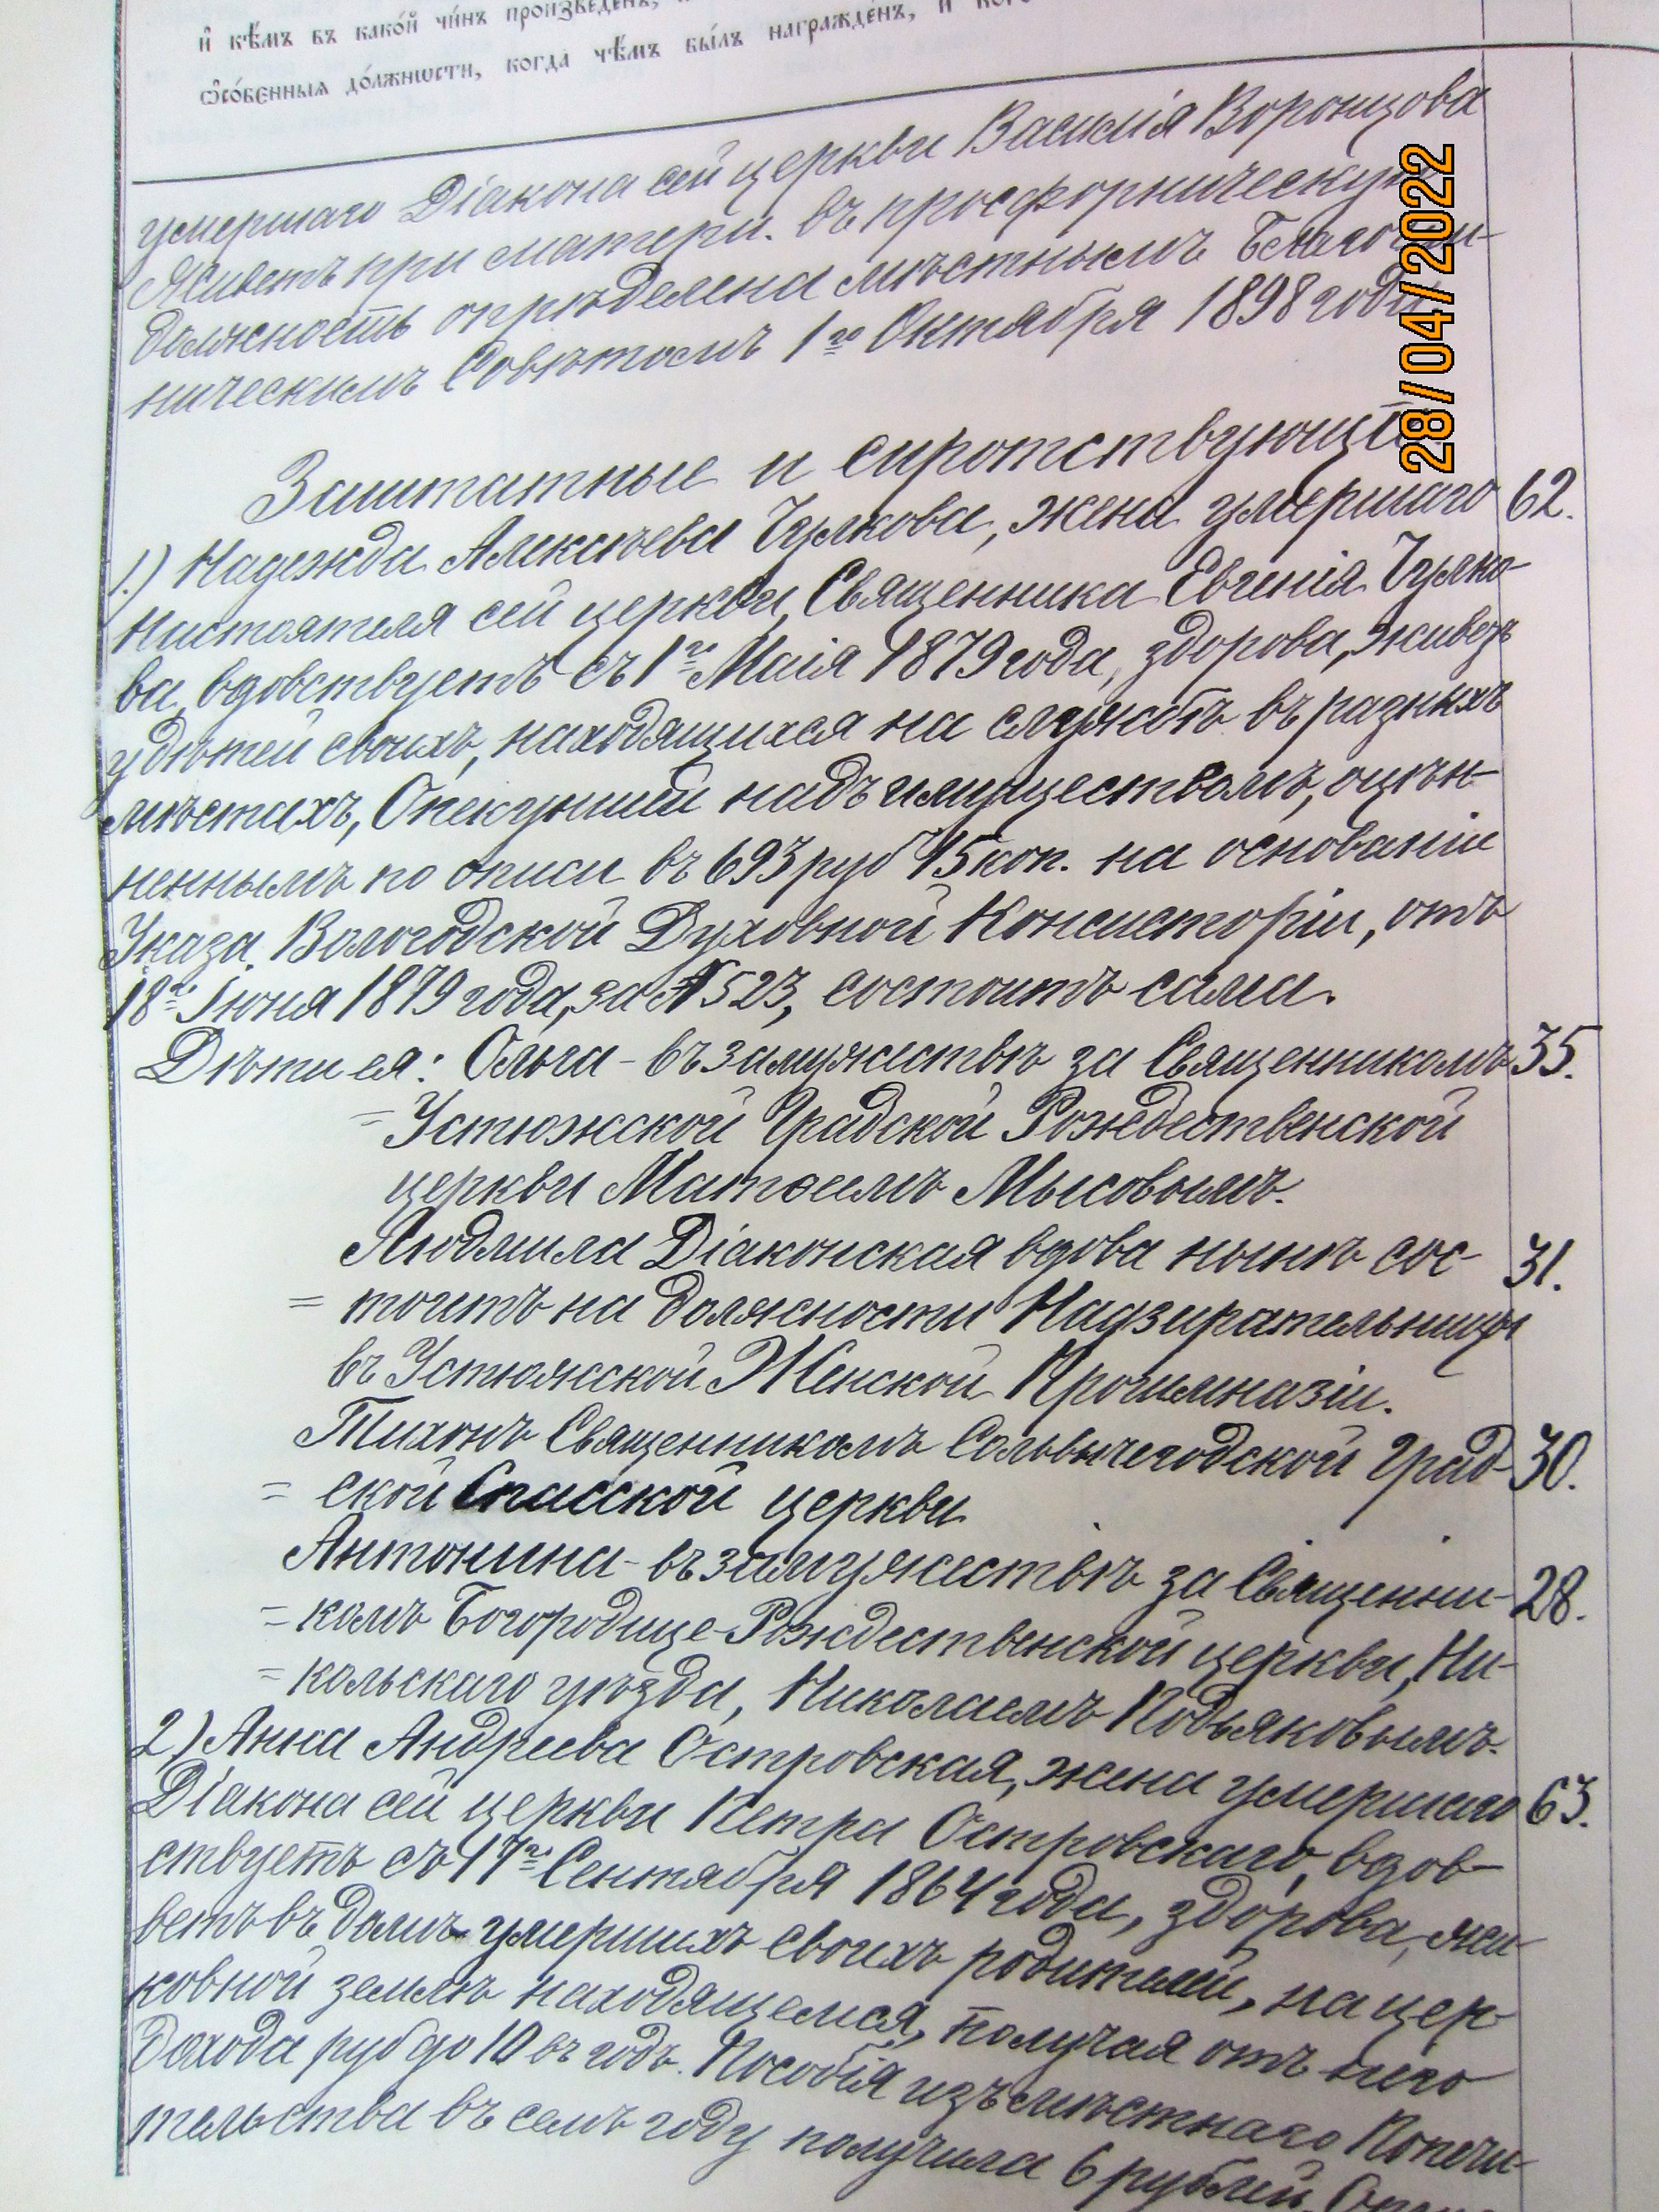 и҆ кѣ́мъ въ како́й чи́нъ произведе́нъ,
ѡ҆со́бенныѧ до́лжнѡсти, когда̀ чѣ́мъ бы́лъ награжде́нъ, и҆
умершаго Діакона сей церкви Василія Воронцова
Живетъ при матери. въ просфорническую
должность опредѣлена мѣстнымъ Благочин-
ническимъ Совѣтомъ 1го Октября 1898 года
28/04/2022
Заштатные и сиротствующіе
1.) Надежда Алексѣева Чулкова, жена умершаго 62.
Настоятеля сей церкви, Священника Евгенія Чулко-
ва, вдовствуетъ съ 1го Маія 1879 года, здорова, живетъ
у дѣтей своихъ, находящихся на службѣ въ разныхъ
мѣстахъ, Опекуншей надъ имуществомъ, оцѣн-
неннымъ по описи въ 693 руб 15 коп. на основаніи
Указа Вологодской Духовной Консисторіи, отъ
18го Іюня 1879 года, за № 523, состоитъ сама.
Дѣти ея: Ольга - въ замужествѣ за Священникомъ 35.
= Устюжской Градской Рождественской
церкви Матѳеемъ Мысовымъ.
Людмила Діаконская вдова нынѣ сос- 31.
= тоитъ на должности Надзирательницы
въ Устюжской Женской Прогимназіи.
Тихонъ Священникомъ Сольвычегодской Град- 30.
= ской Спасской церкви
Антонина - въ замужествѣ за Священни- 28.
= комъ Богородице-Рождественской церкви, Ни-
= кольскаго уѣзда, Николаемъ Подьяковымъ.
2) Анна Андреева Островская, жена умершаго 63.
Діакона сей церкви Петра Островскаго, вдов-
ствуетъ съ 17го Сентября 1864 года, здорова, жи-
ветъ въ домѣ умершихъ своихъ родителей, на цер-
ковной землѣ находящемся, получая отъ него
дохода руб до 10 въ годъ. Пособія изъ мѣстнаго Попечи-
тельства въ семъ году получила 6 рублей.